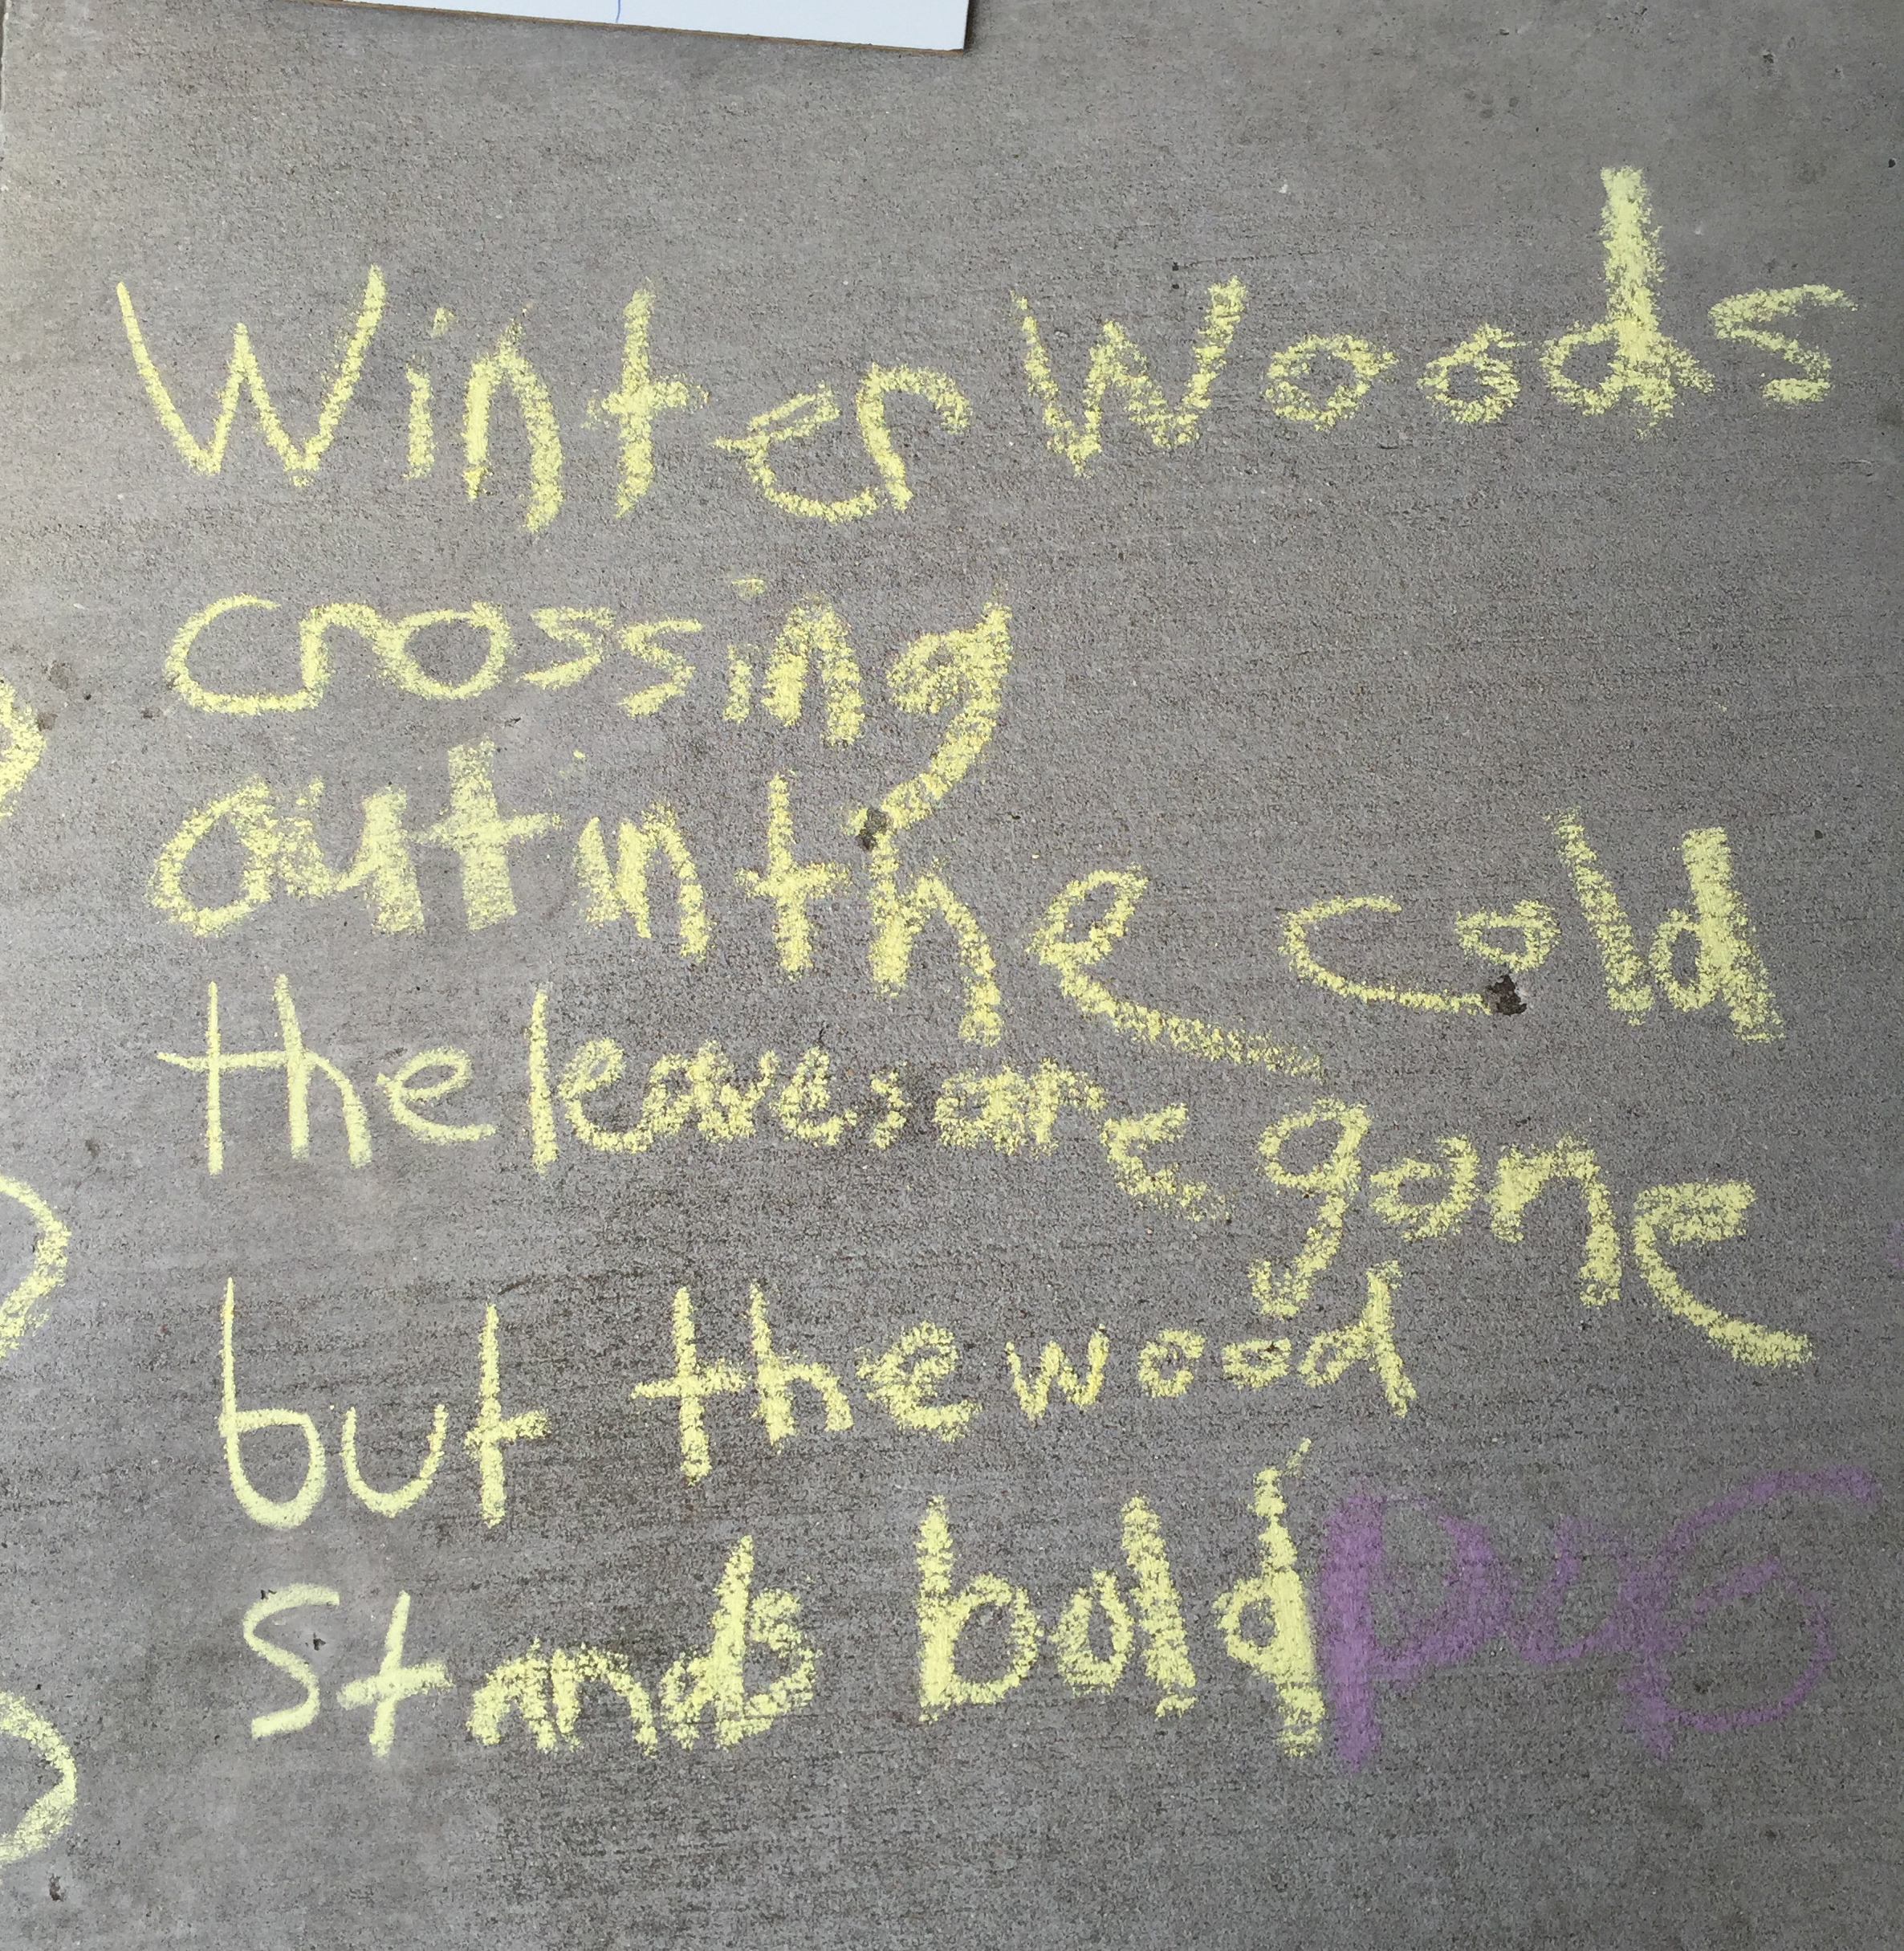 Winter Woods
crossing
out in the cold
the leaves are gone
but the wood
Stands bold